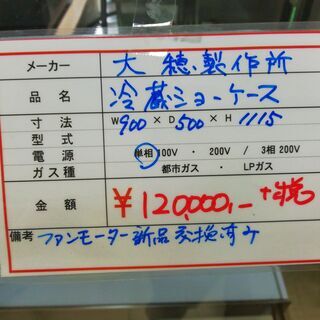 メーカー 大穂製作所
品名 冷蔵ショーケース
寸法 W900×D500×H1115
型式
電源 単相100V ・ 200V / 3相200V
ガス種 都市ガス ・ LPガス
金額 ¥120,000,- +税
備考 ファンモーター新品交換すみ